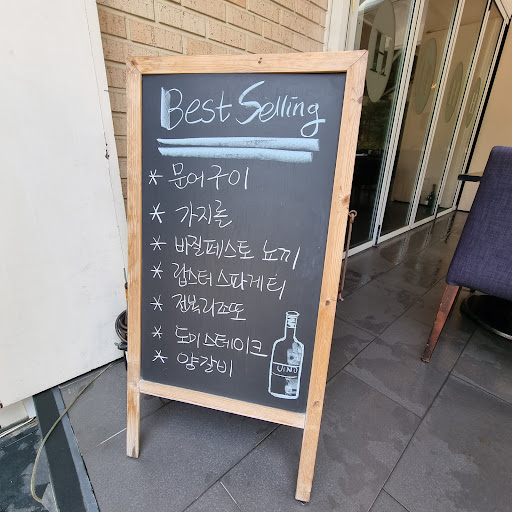 Best Selling
* 문어구이
* 가지롤
* 바질페스토 뇨끼
* 랍스터스파게티
* 전복리조또
* 도미스테이크
* 양갈비
VINO